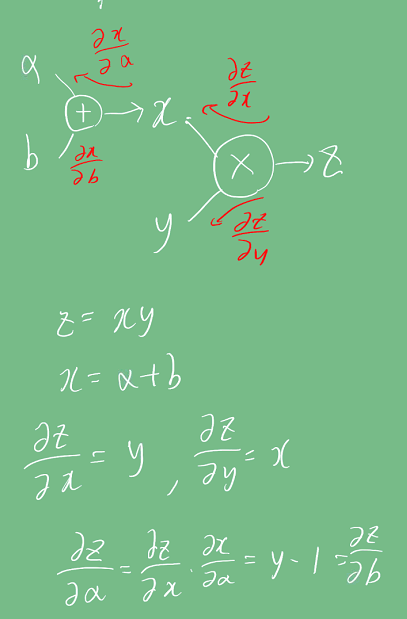 ∂x/∂a
a
+ x
∂z/∂x
b ∂x/∂b
× z
y ∂z/∂y
z = xy
x = a + b
∂z/∂x = y , ∂z/∂y = x
∂z/∂a = ∂z/∂x · ∂x/∂a = y - 1 = ∂z/∂b